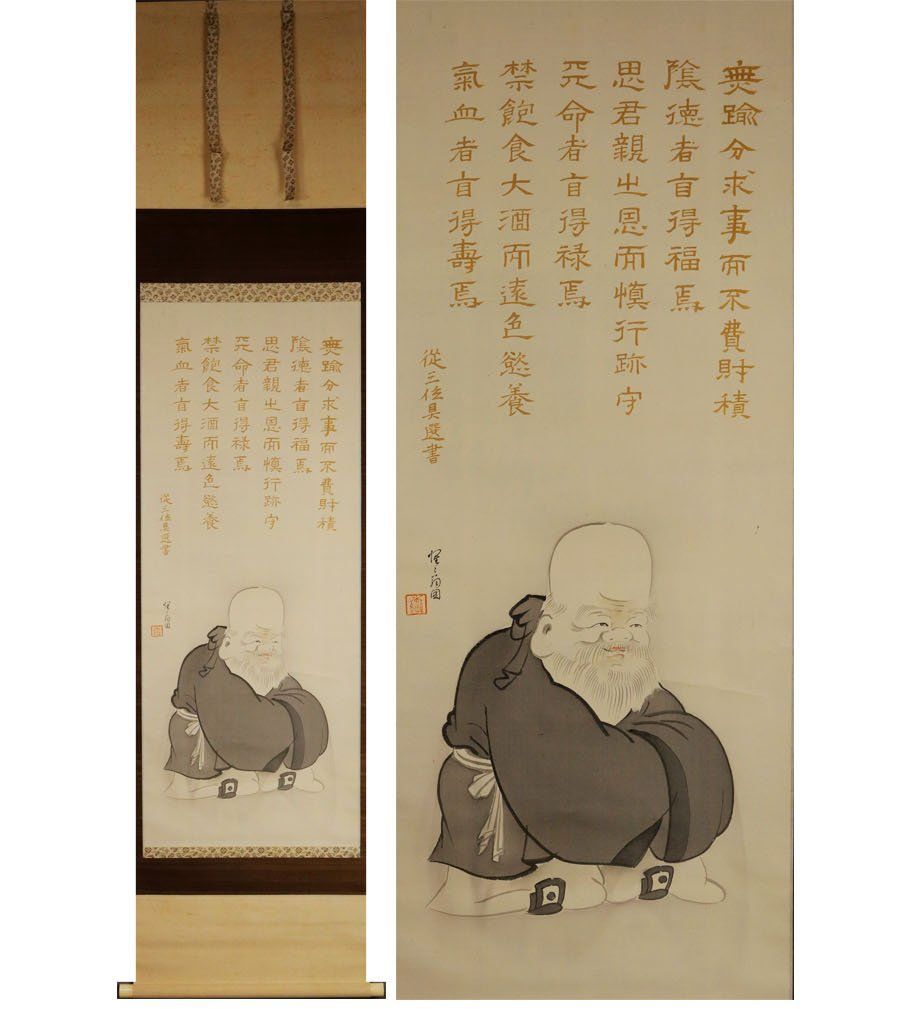 無踰分求事而不費財積
陰徳者得福焉
思君親之恩而慎行跡守
天命者得禄焉
禁飽食大酒而遠色慾養
氣血者得壽焉
從三位具選書
翁圖
無踰分求事而不費財積
陰徳者得福焉
思君親之恩而慎行跡守
天命者得禄焉
禁飽食大酒而遠色慾養
氣血者得壽焉
從三位具選書
翁圖